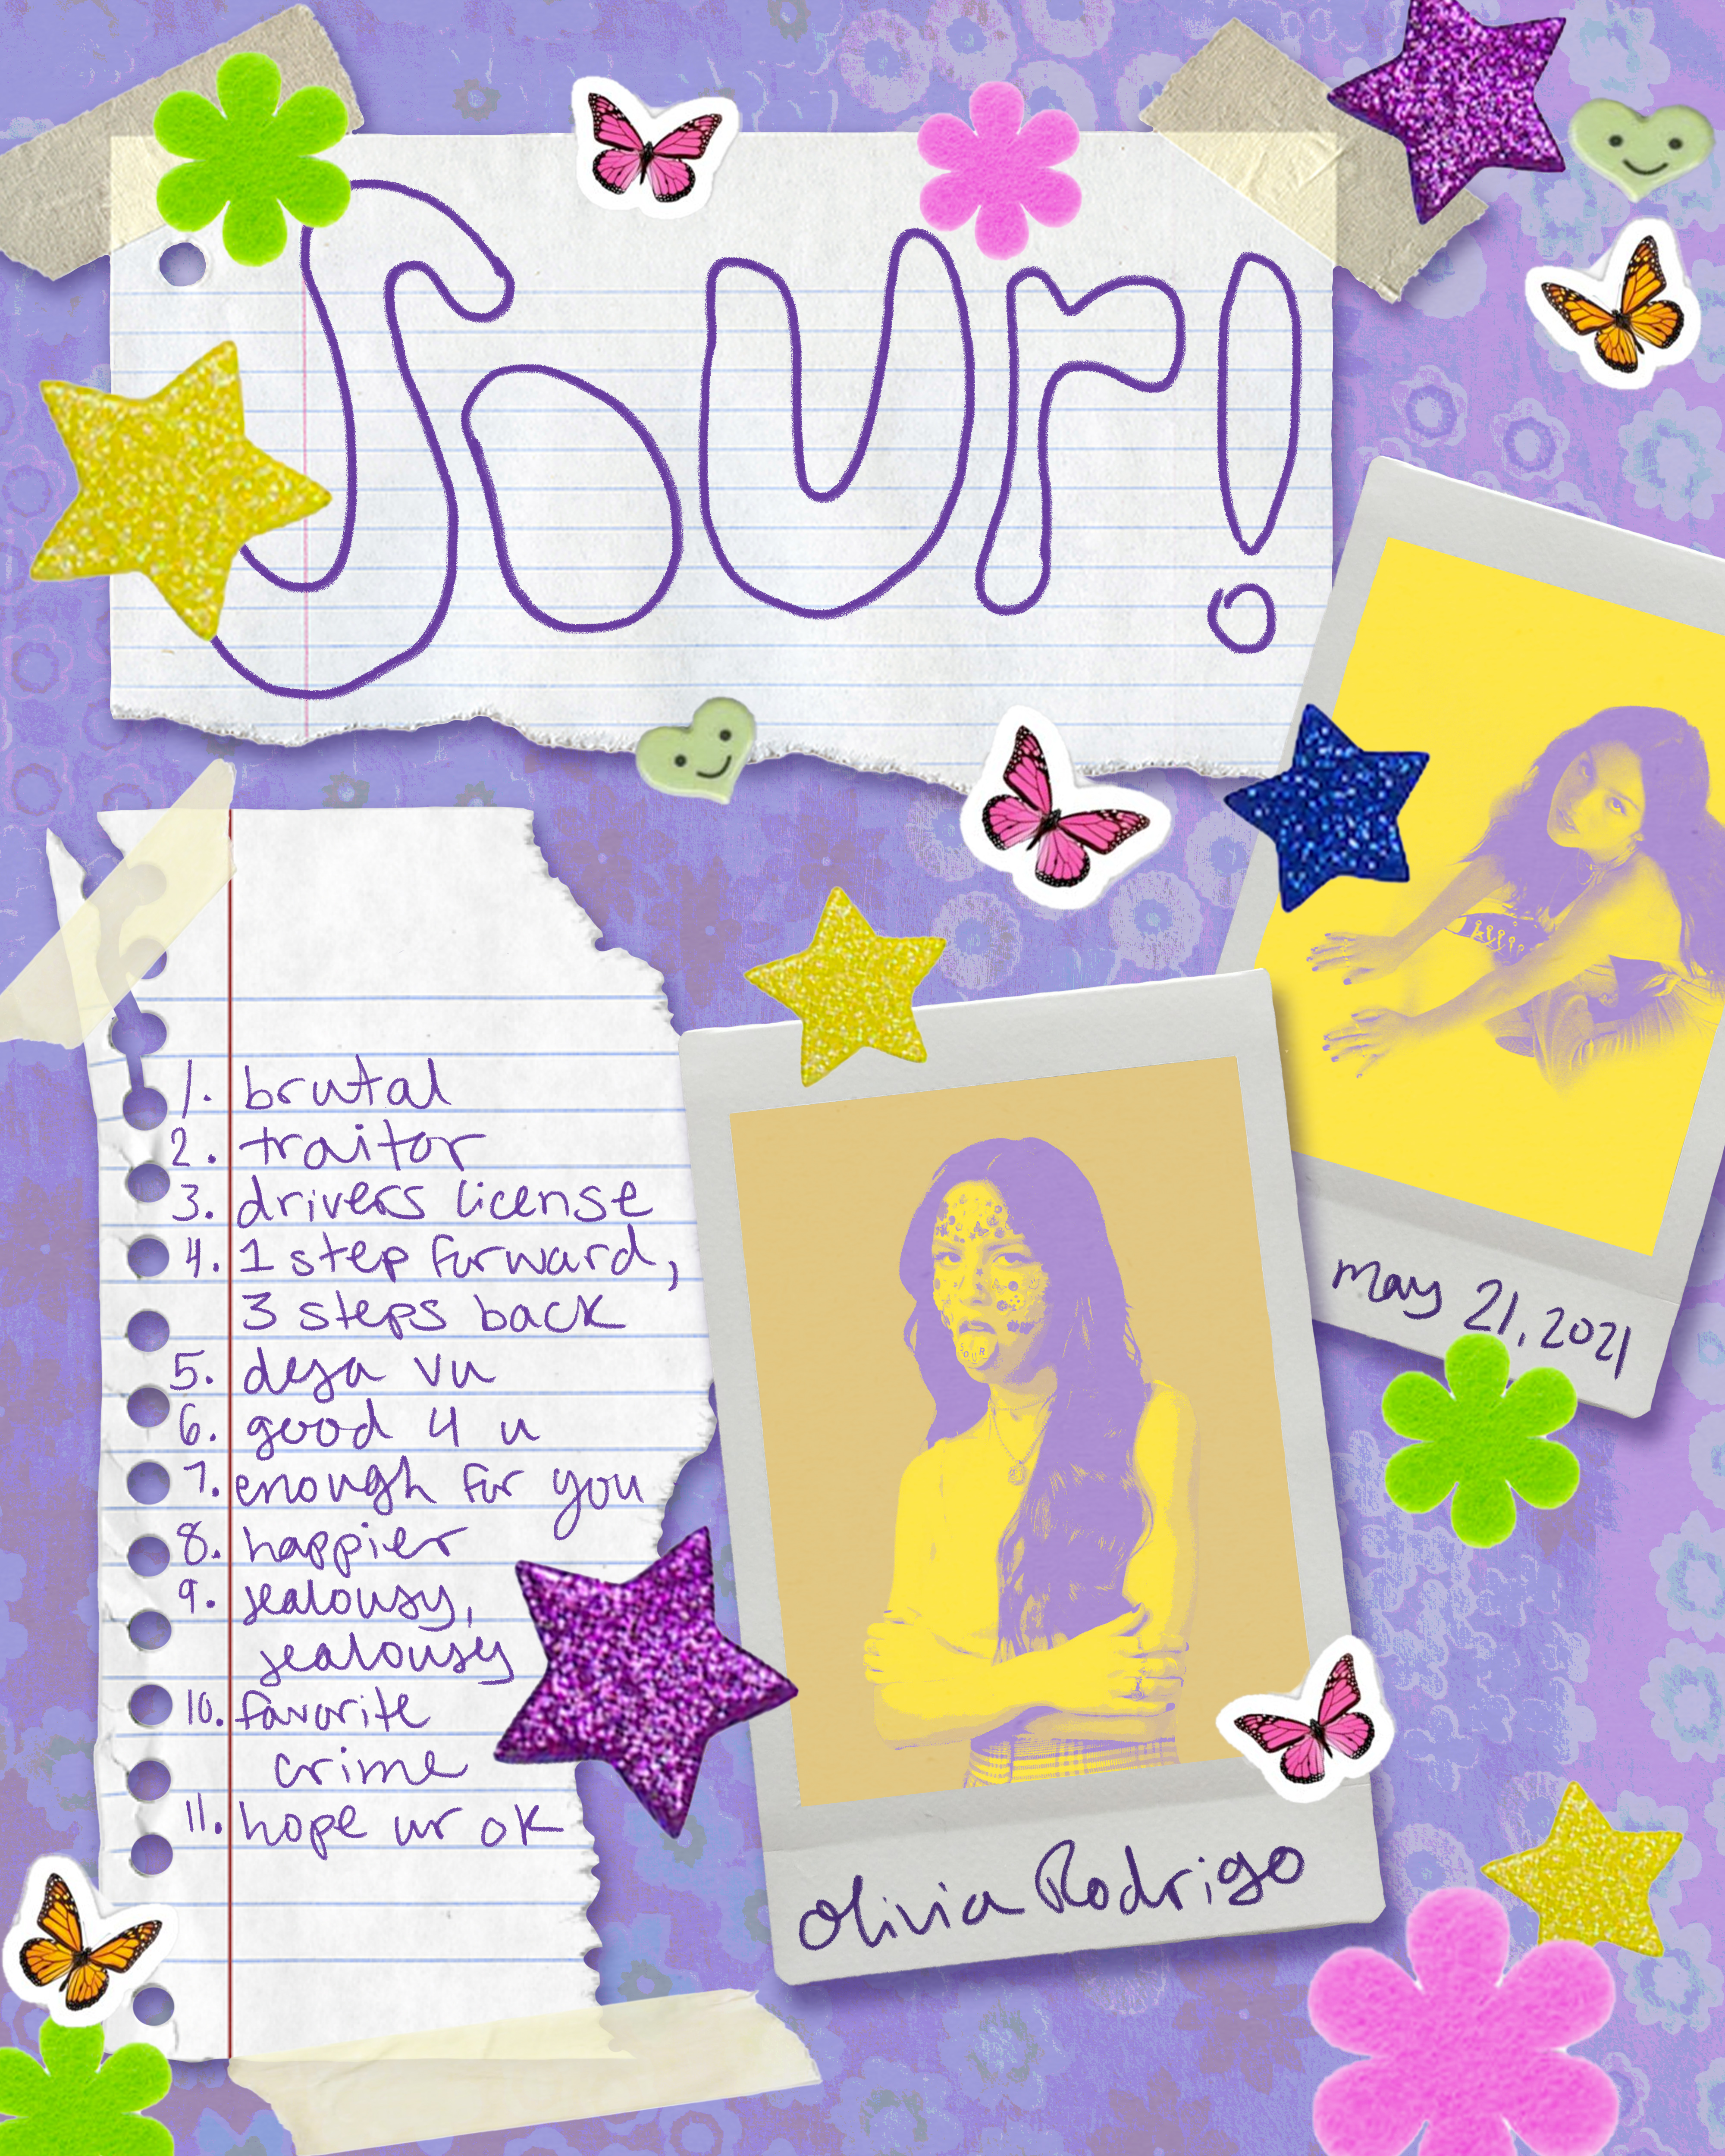 Sour!
1. brutal
2. traitor
3. drivers license
4. 1 step forward,
3 steps back
5. deja vu
6. good 4 u
7. enough for you
8. happier
9. jealousy,
jealousy
10. favorite
crime
11. hope ur ok
may 21, 2021
SOUR
Olivia Rodrigo